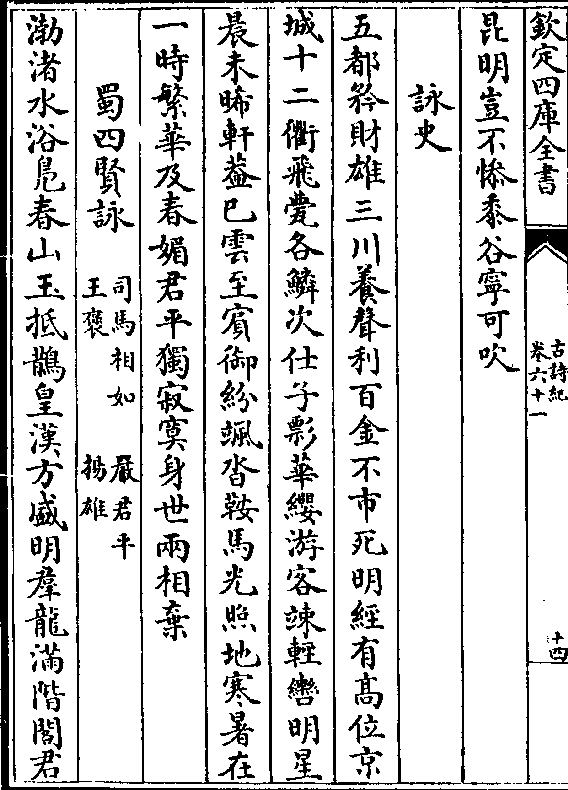 欽定四庫全書
古詩紀
卷六十一
十四
昆明豈不慘黍谷寧可吹
詠史
五都矜財雄三川養聲利百金不市死明經有髙位京
城十二衢飛甍各鱗次仕子彯華纓游客竦輕轡明星
晨未晞軒葢已雲至賓御紛颯沓鞍馬光照地寒暑在
一時繁華及春媚君平獨寂寞身世兩相棄
蜀四賢詠
司馬相如 嚴君平
王褒 揚雄
渤渚水浴鳬春山玉抵鵲皇漢方盛明羣龍滿階閣君